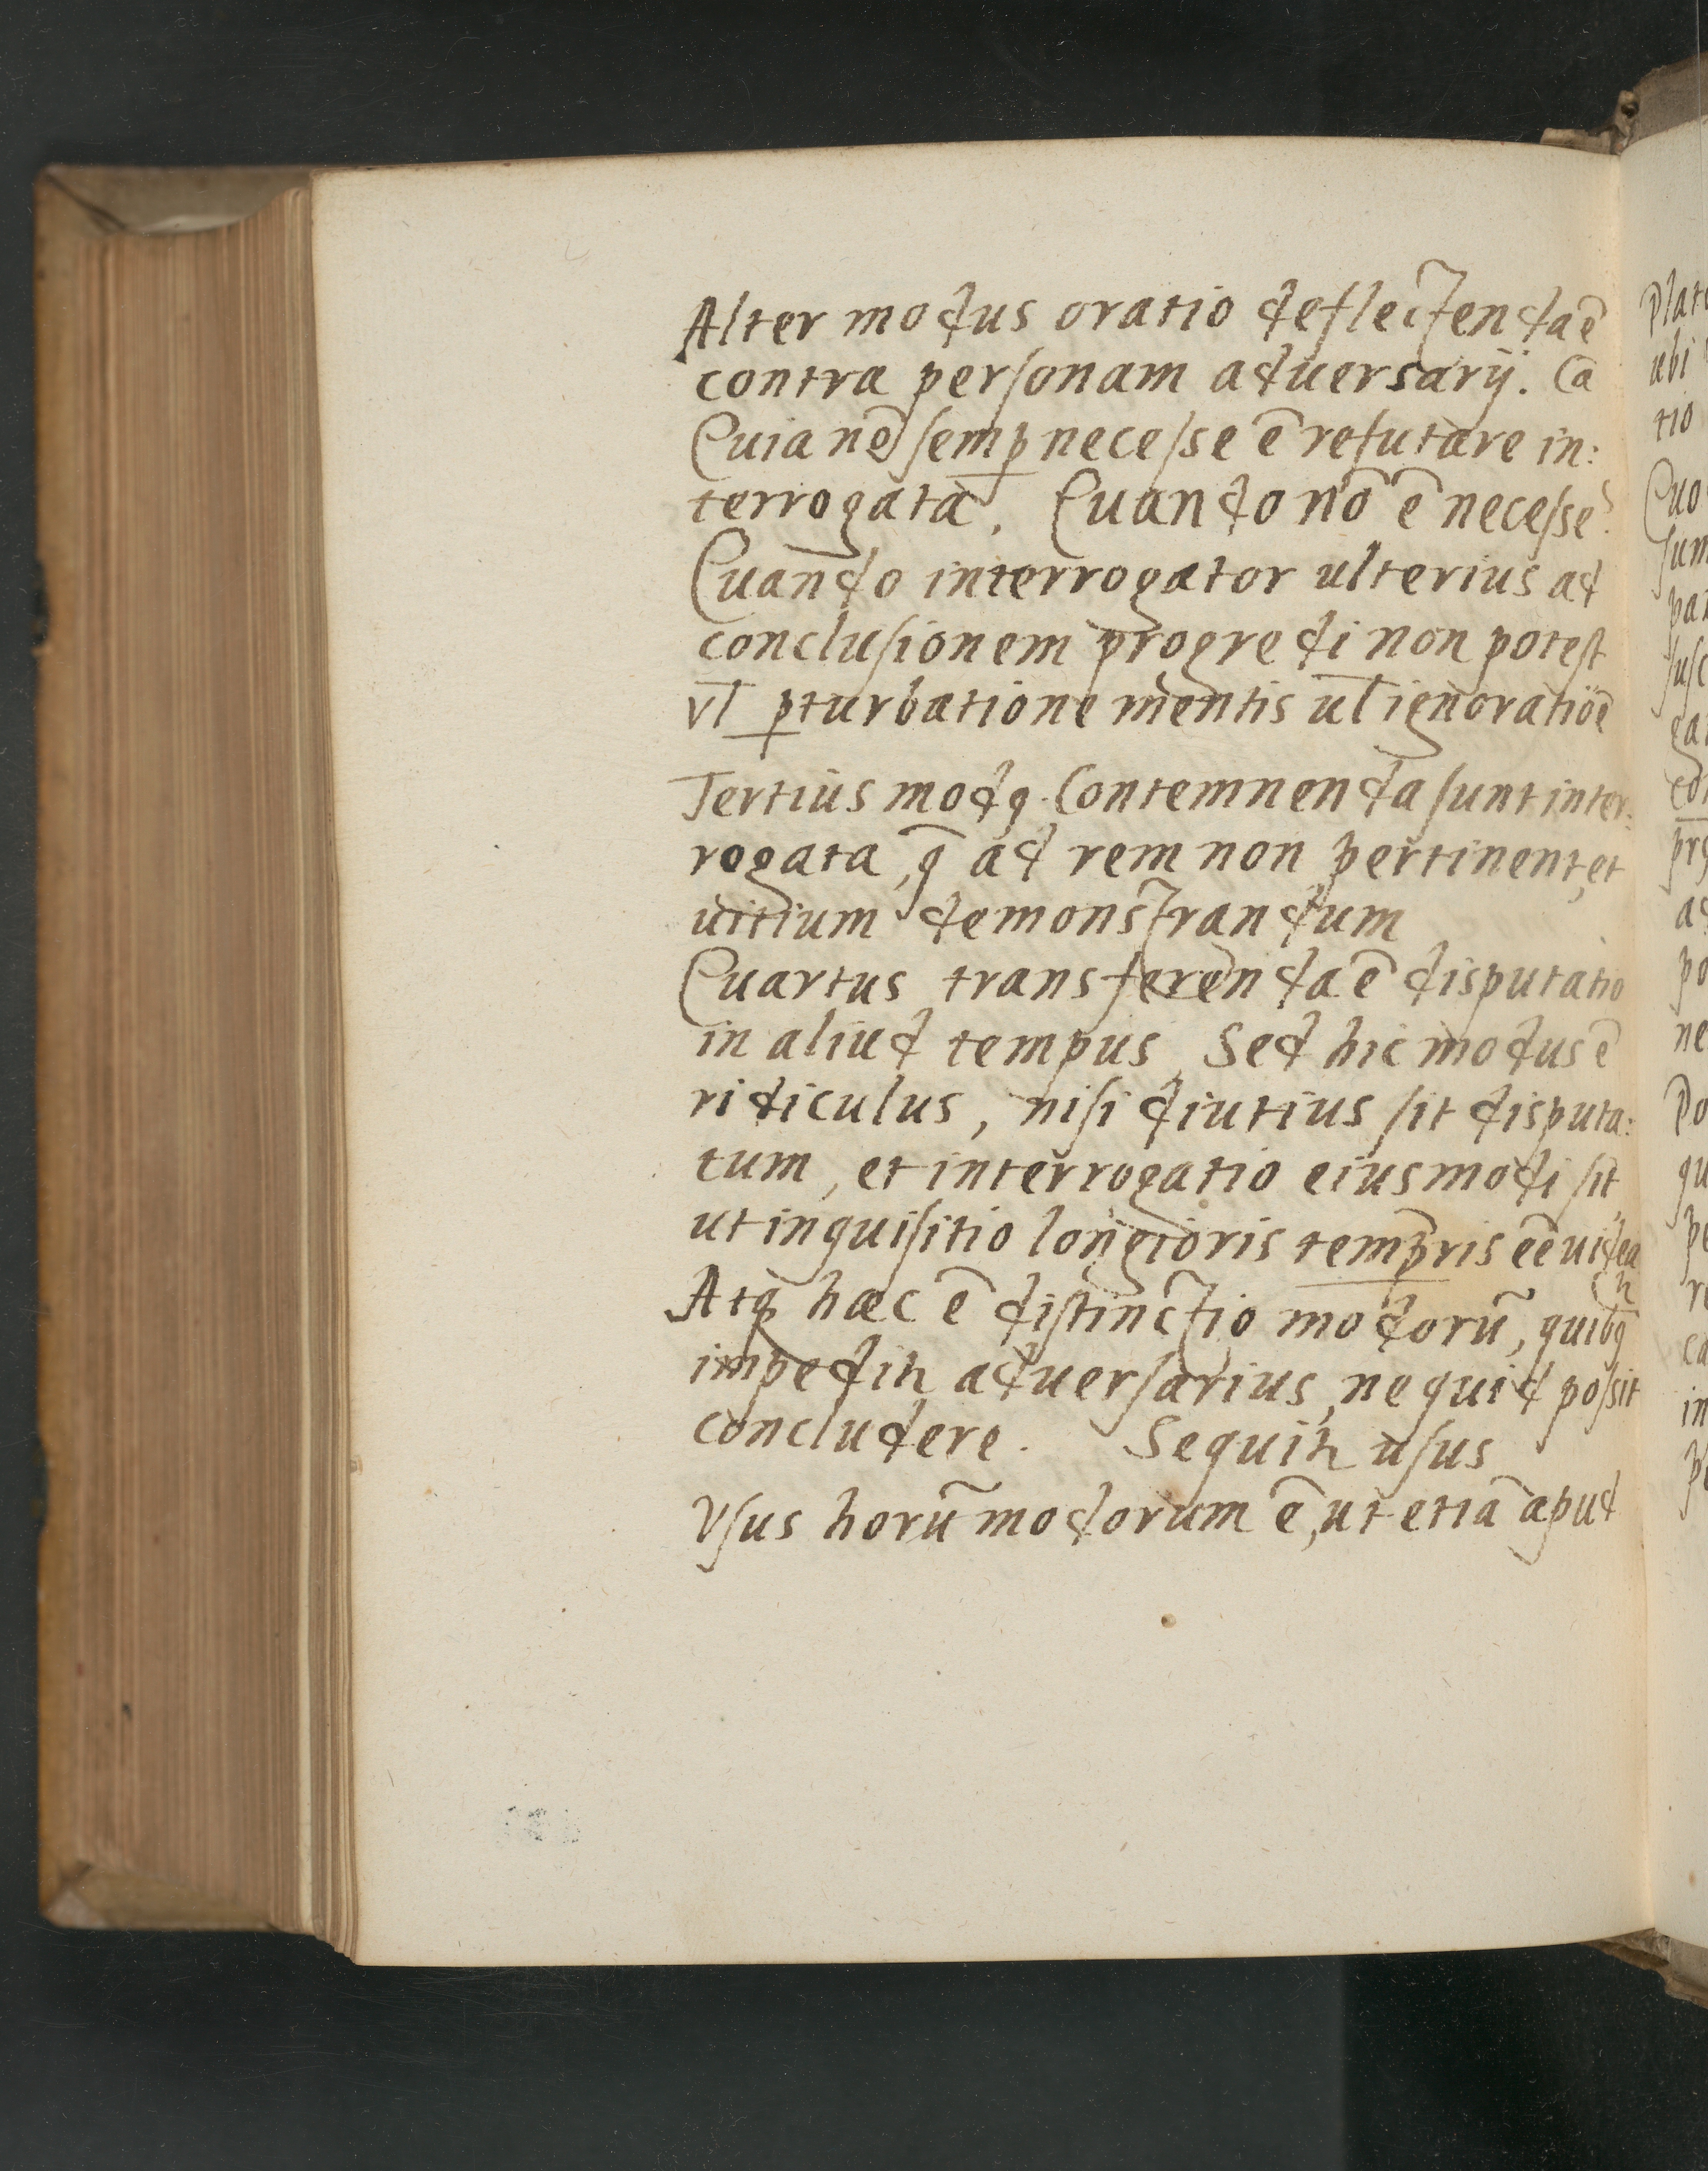 Alter modus oratio deflectenda ē
contra personam aduersarij. Cā
Quia nō semp̲ necesse ē refutare in:
terrogata. Quando nō ē necesse?
Quando interrogator ulterius ad
conclusionem progredi non potest
vl̄ p̲turbatione mentis ul̄ ignoratiōe
Tertius modꝯ. Contemnenda sunt inter:
rogata, q̄ ad rem non pertinent, et
uitium demonstrandum
Quartus transferenda ē disputatio
in aliud tempus, Sed hic modus ē
ridiculus, nisi diutius sit disputa:
tum, et interrogatio eiusmodi sit
ut inquisitio longioris temp̲ris eē uidea
tꝛ
Atqꝫ haec ē distinctio modorū, quibꝯ
impeditꝛ aduersarius, ne quid possit
concludere. Sequitꝛ usus
Vsus horū modorum ē, ut etiā apud
Plat
ubi
tio
Quo
sum